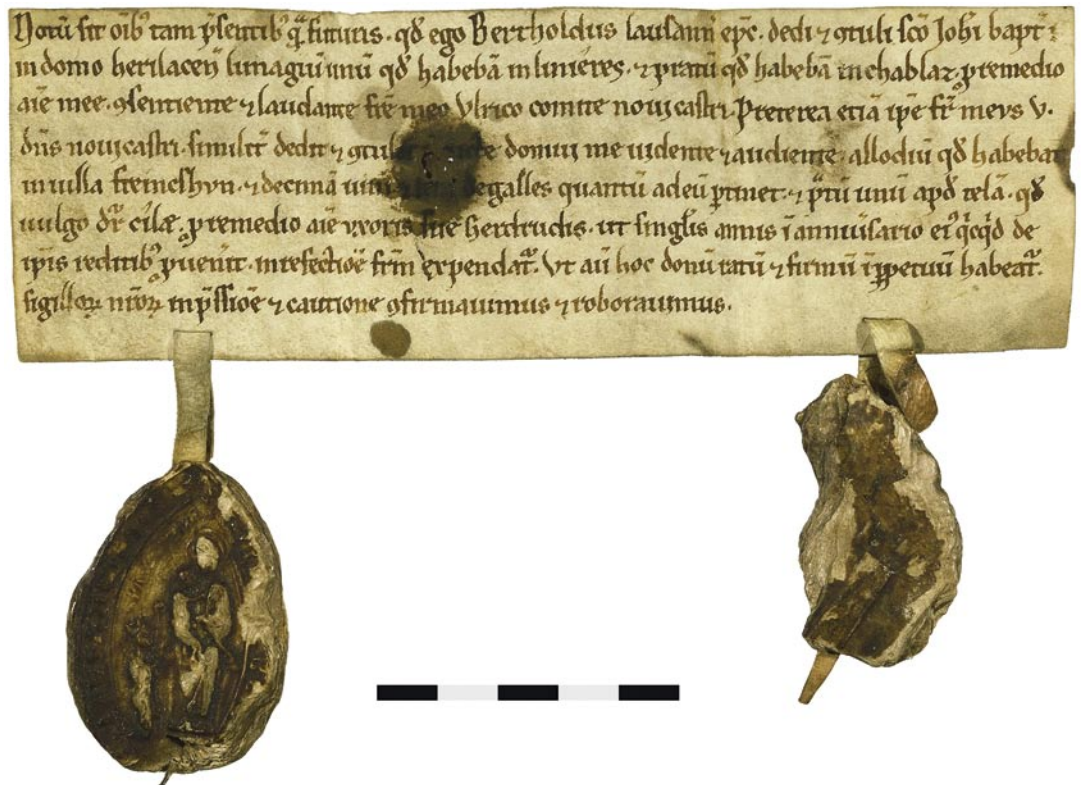 Notū sit oīb᷒ tam p̄sentib᷒ q̄ᵃ futuris · qđ ego Bertholdus lausann̄ ep̄c · dedi ⁊ ꝯtuli sc̄o Joh̄i bapt̄
in domo herilacen̄ lunagiū unū qđ habebā in linieres · ⁊ pratū qđ habebā in chablaz · ꝓ remedio
aīe mee · ꝯsentiente ⁊ laudante fr̄e meo Vlrico comite nouicastri · Preterea etiā ip̄e fr̄ meus V ·
dn̄s nouicastri · similit̄ dedit ⁊ ꝯtulit domui me uidente ⁊ audiente · allodiū qđ habebat
in uilla freinshun · ⁊ decimā degalles quantū ad eū ꝑtinet · ⁊ p̄tū unū apđ telā · qđ
uulgo dr̄ cilæ · ꝓ remedio aīe uxoris sue Berchtudis · ut singl̄is annis ī anniūsario ei᷒ q̇cq̇d de
ip̄is redditib᷒ ꝓuen̄it · in refectioē fr̄m expendat᷑ · Vt aū hoc donū ratū ⁊ firmū ī ꝑpetuū habeat᷑ ·
sigilloꝝ nr̄oꝝ inp̄ssioē ⁊ cautione ꝯfirmauimus ⁊ roborauimus ·